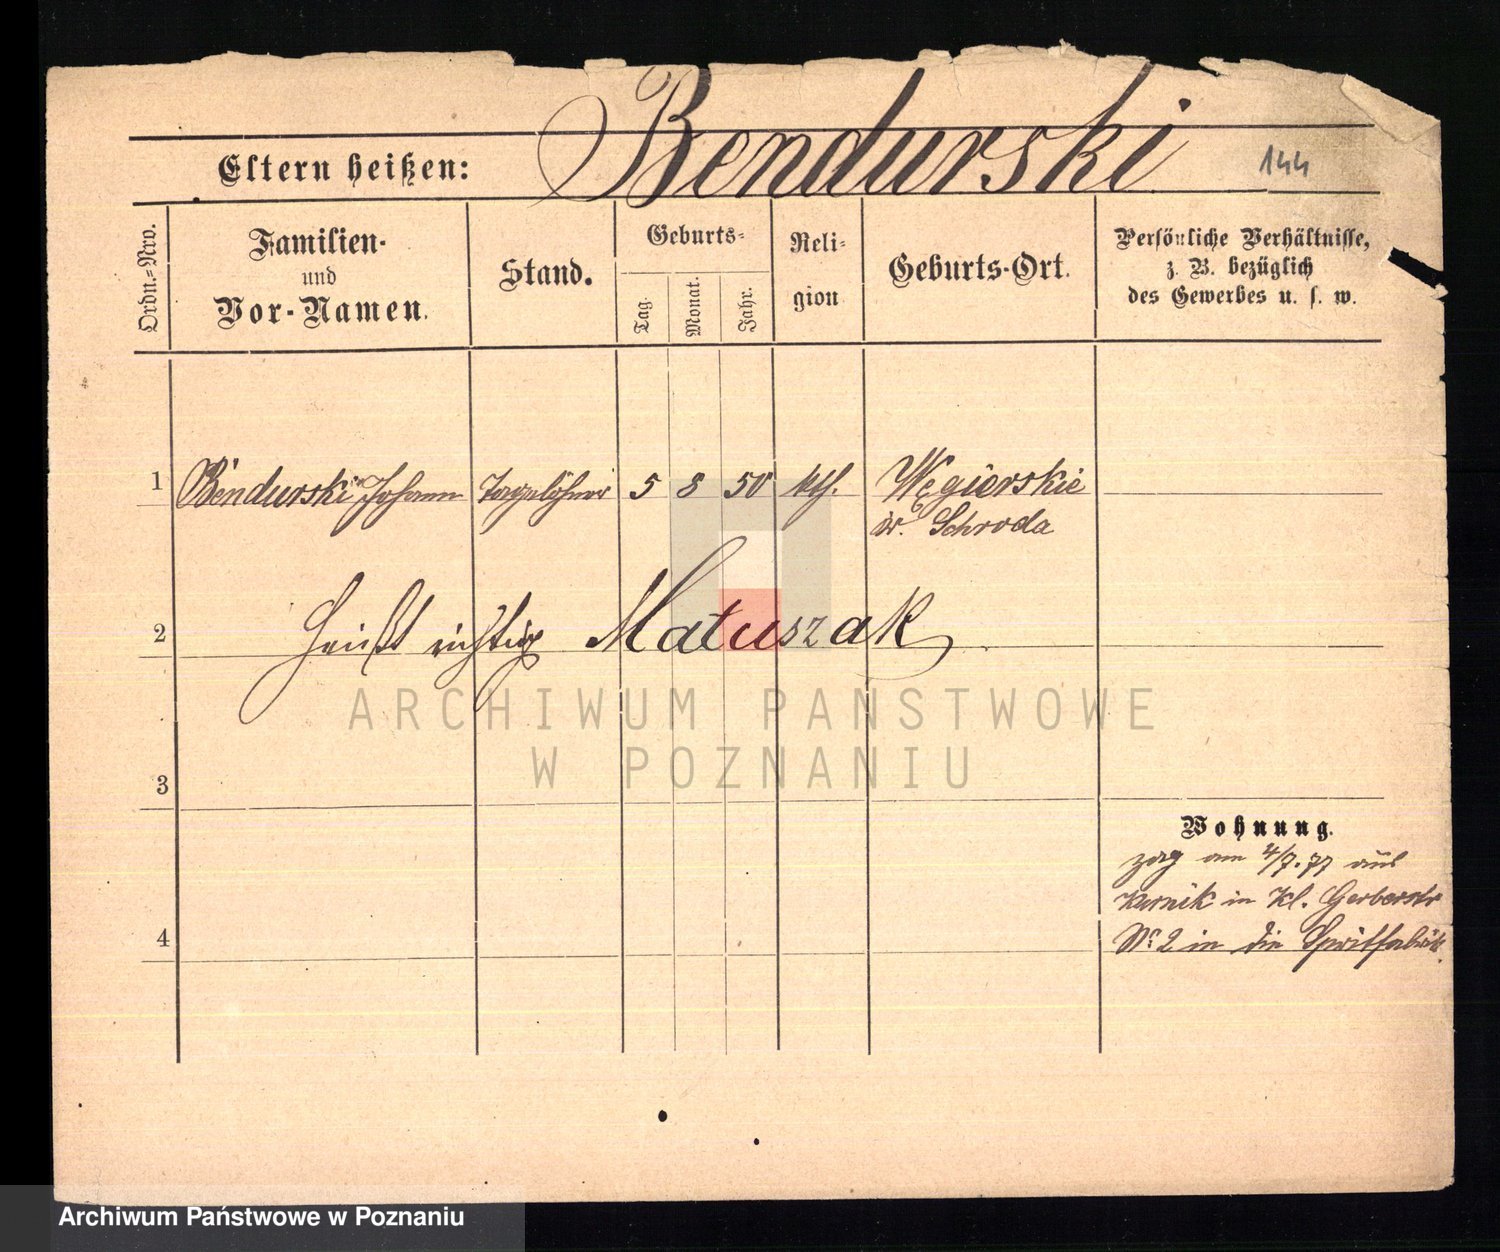 Bendurski
Eltern heißen:
144
Ordn.-Nro.
Familien-
und
Vor-Namen.
Stand.
Geburts-
Tag.
Monat.
Jahr.
Reli-
gion
Geburts-Ort.
Persönliche Verhältnisse,
z. B. bezüglich
des Gewerbes u. s. w.
1 Bendurski Johann Tagelöhner 5 8 50 kth. Węgierskie
Kr. Schroda
2 heißt richtig Matuszak
3
4
Wohnung.
zog am 4/7.77 aus
Kurnik in Kl. Gerberstr
No 2 in die Spritfabrik.
ARCHIWUM PAŃSTWOWE
W POZNANIU
Archiwum Państwowe w Poznaniu